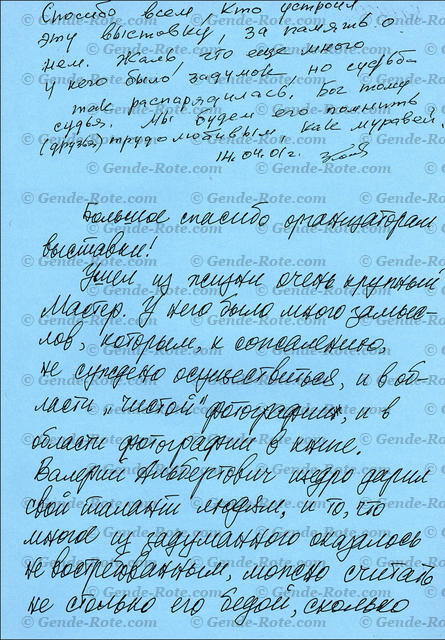 Спасибо всем, кто устроил
эту выставку, за память о
нем. Жаль, что еще много
у него было задумок но судьба
так распорядилась. Бог тому
судья. Мы будем его помнить
(друзья) трудолюбивым, как муравей.
14.04.01г.
Большое спасибо организаторам
выставки!
Ушел из жизни очень крупный
Мастер. У него было много замыс-
лов, которым, к сожалению,
не суждено осуществиться, и в об-
ласти "чистой" фотографии, и в
области фотографии в книге.
Валерий Альбертович щедро дарил
свой талант людям, и то, что
многое из задуманного оказалось
не востребованным, можно считать
не столько его бедой, сколько
© Gende-Rote.com